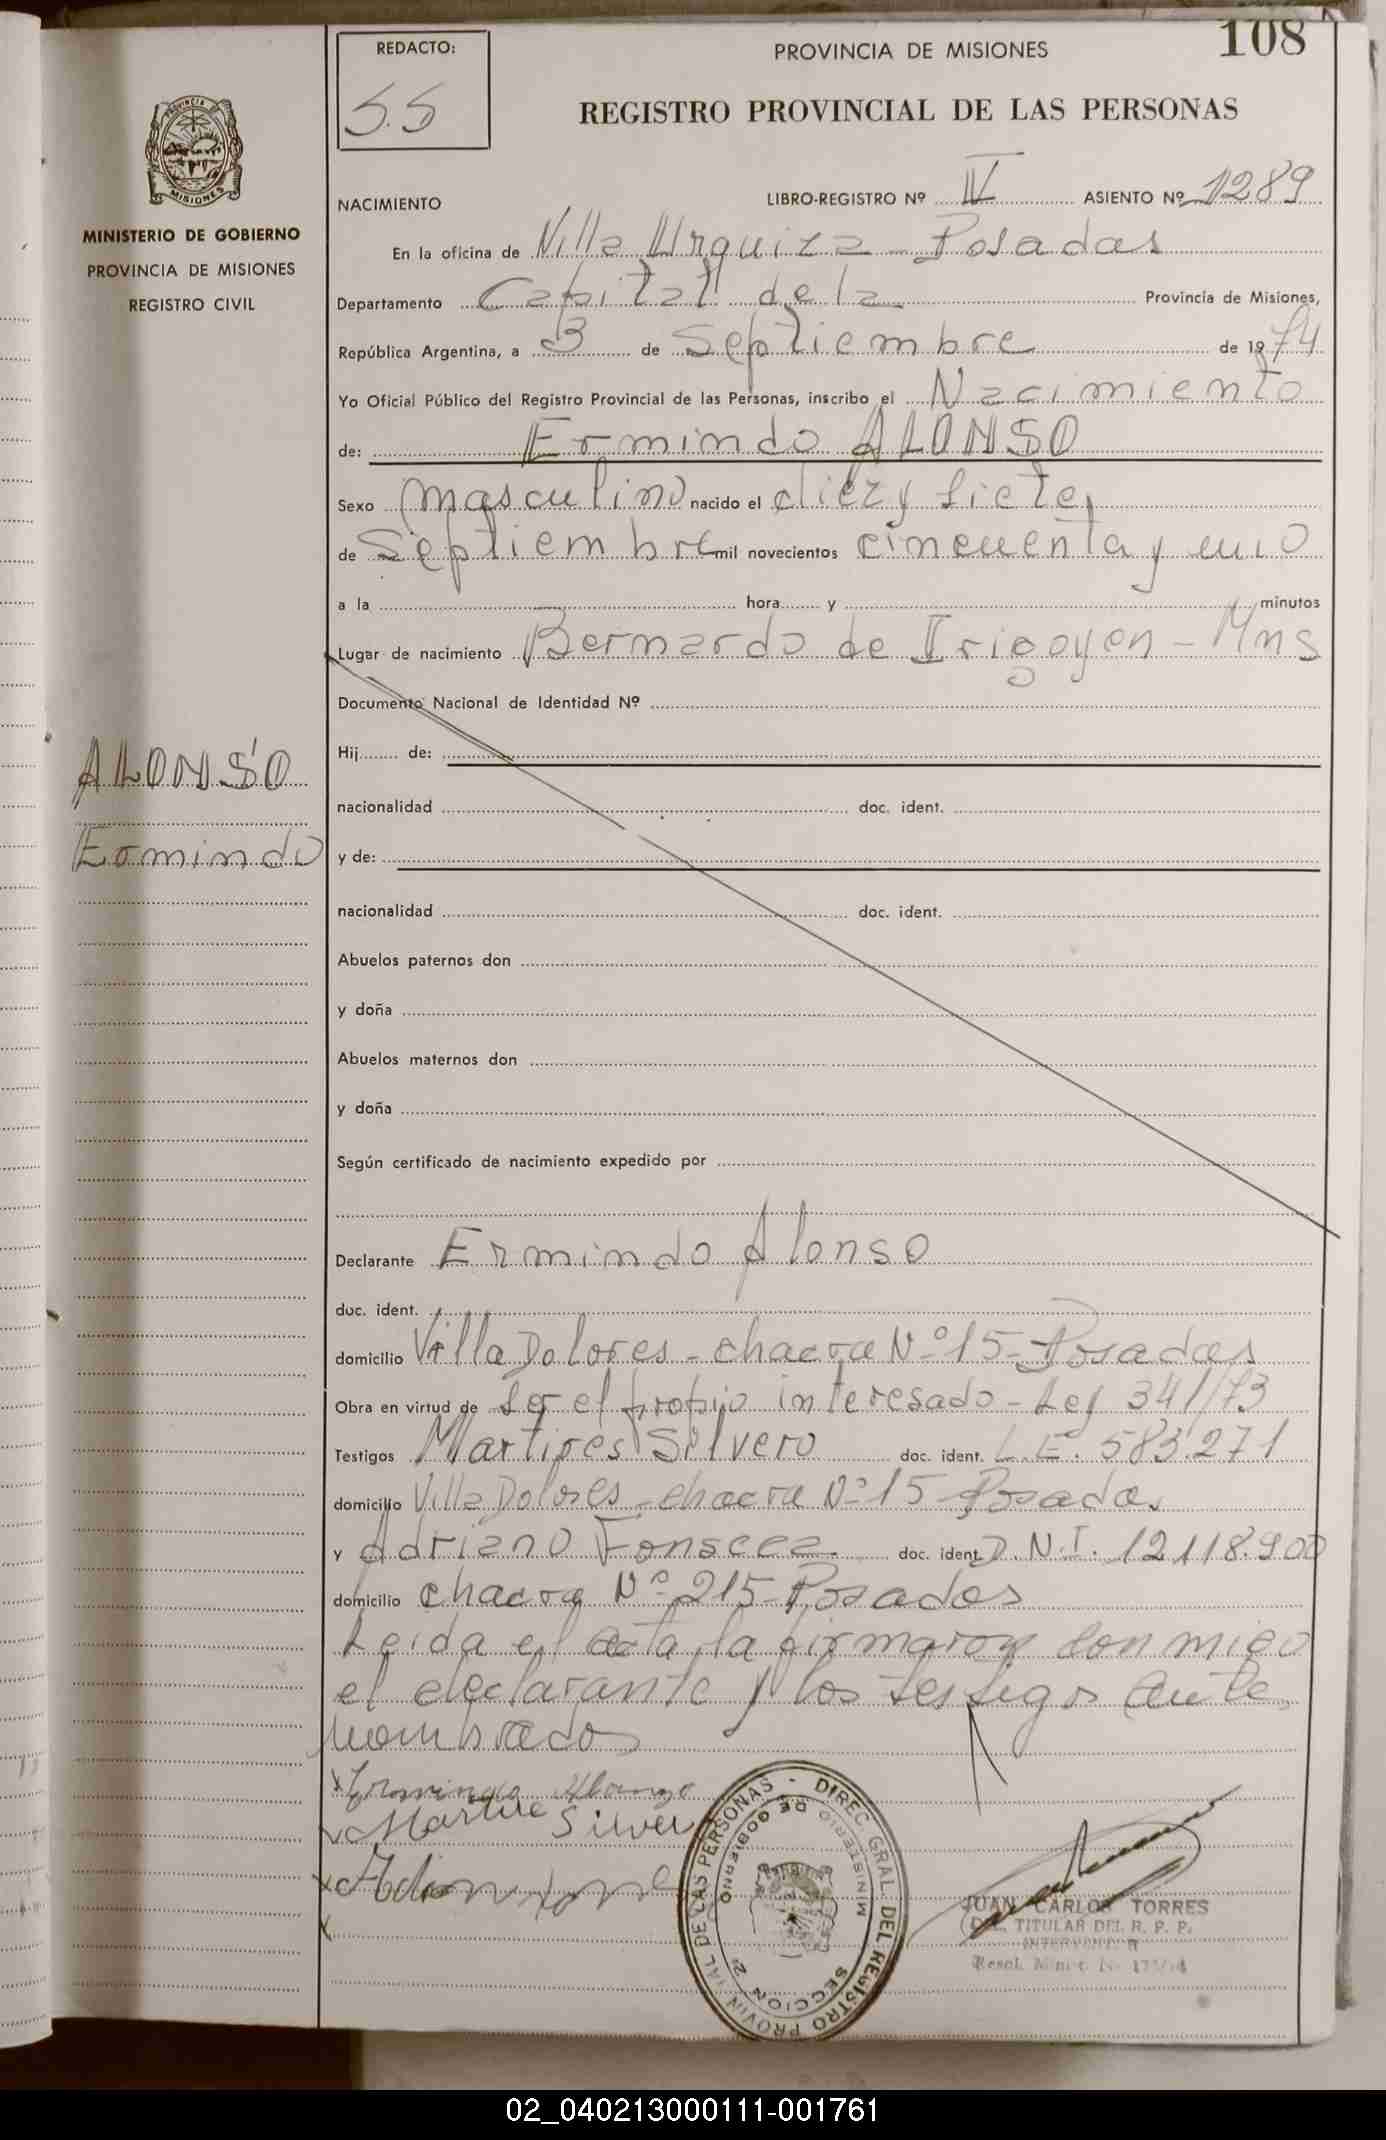 108
REDACTO:
S.S
PROVINCIA DE MISIONES
REGISTRO PROVINCIAL DE LAS PERSONAS
PROVINCIA DE
MISIONES
MINISTERIO DE GOBIERNO
PROVINCIA DE MISIONES
REGISTRO CIVIL
ALONSO
Ermindo
NACIMIENTO LIBRO-REGISTRO Nº IV ASIENTO Nº 1289
En la oficina de Villa Urquiza - Posadas
Departamento Capital de la Provincia de Misiones,
República Argentina, a 3 de Septiembre de 1974
Yo Oficial Público del Registro Provincial de las Personas, inscribo el Nacimiento
de: Ermindo ALONSO
Sexo masculino nacido el diez y siete
de Septiembre mil novecientos cincuenta y uno
a la hora y minutos
Lugar de nacimiento Bernardo de Irigoyen - Mns
Documento Nacional de Identidad Nº
Hij de:
nacionalidad doc. ident.
y de:
nacionalidad doc. ident.
Abuelos paternos don
y doña
Abuelos maternos don
y doña
Según certificado de nacimiento expedido por
Declarante Ermindo Alonso
doc. ident.
domicilio Villa Dolores - chacra Nº 15 - Posadas
Obra en virtud de ser el propio interesado - Ley 341/73
Testigos Martires Silvero doc. ident. L.E. 583.271
domicilio Villa Dolores - chacra Nº 15 Posadas
y Adriano Fonseca doc. ident. D.N.I. 12118.900
domicilio chacra Nº 215 - Posadas
Leida el acta la firmaron conmigo
el declarante y los testigos ante
nombrados
Ermindo Alonzo
Martire Silver
DIREC. GRAL. DEL REGISTRO PROVINCIAL DE LAS PERSONAS -
MINISTERIO DE GOBIERNO
SECCION 2ª
JUAN CARLOS TORRES
TITULAR DEL R. P. P.
02_040213000111-001761